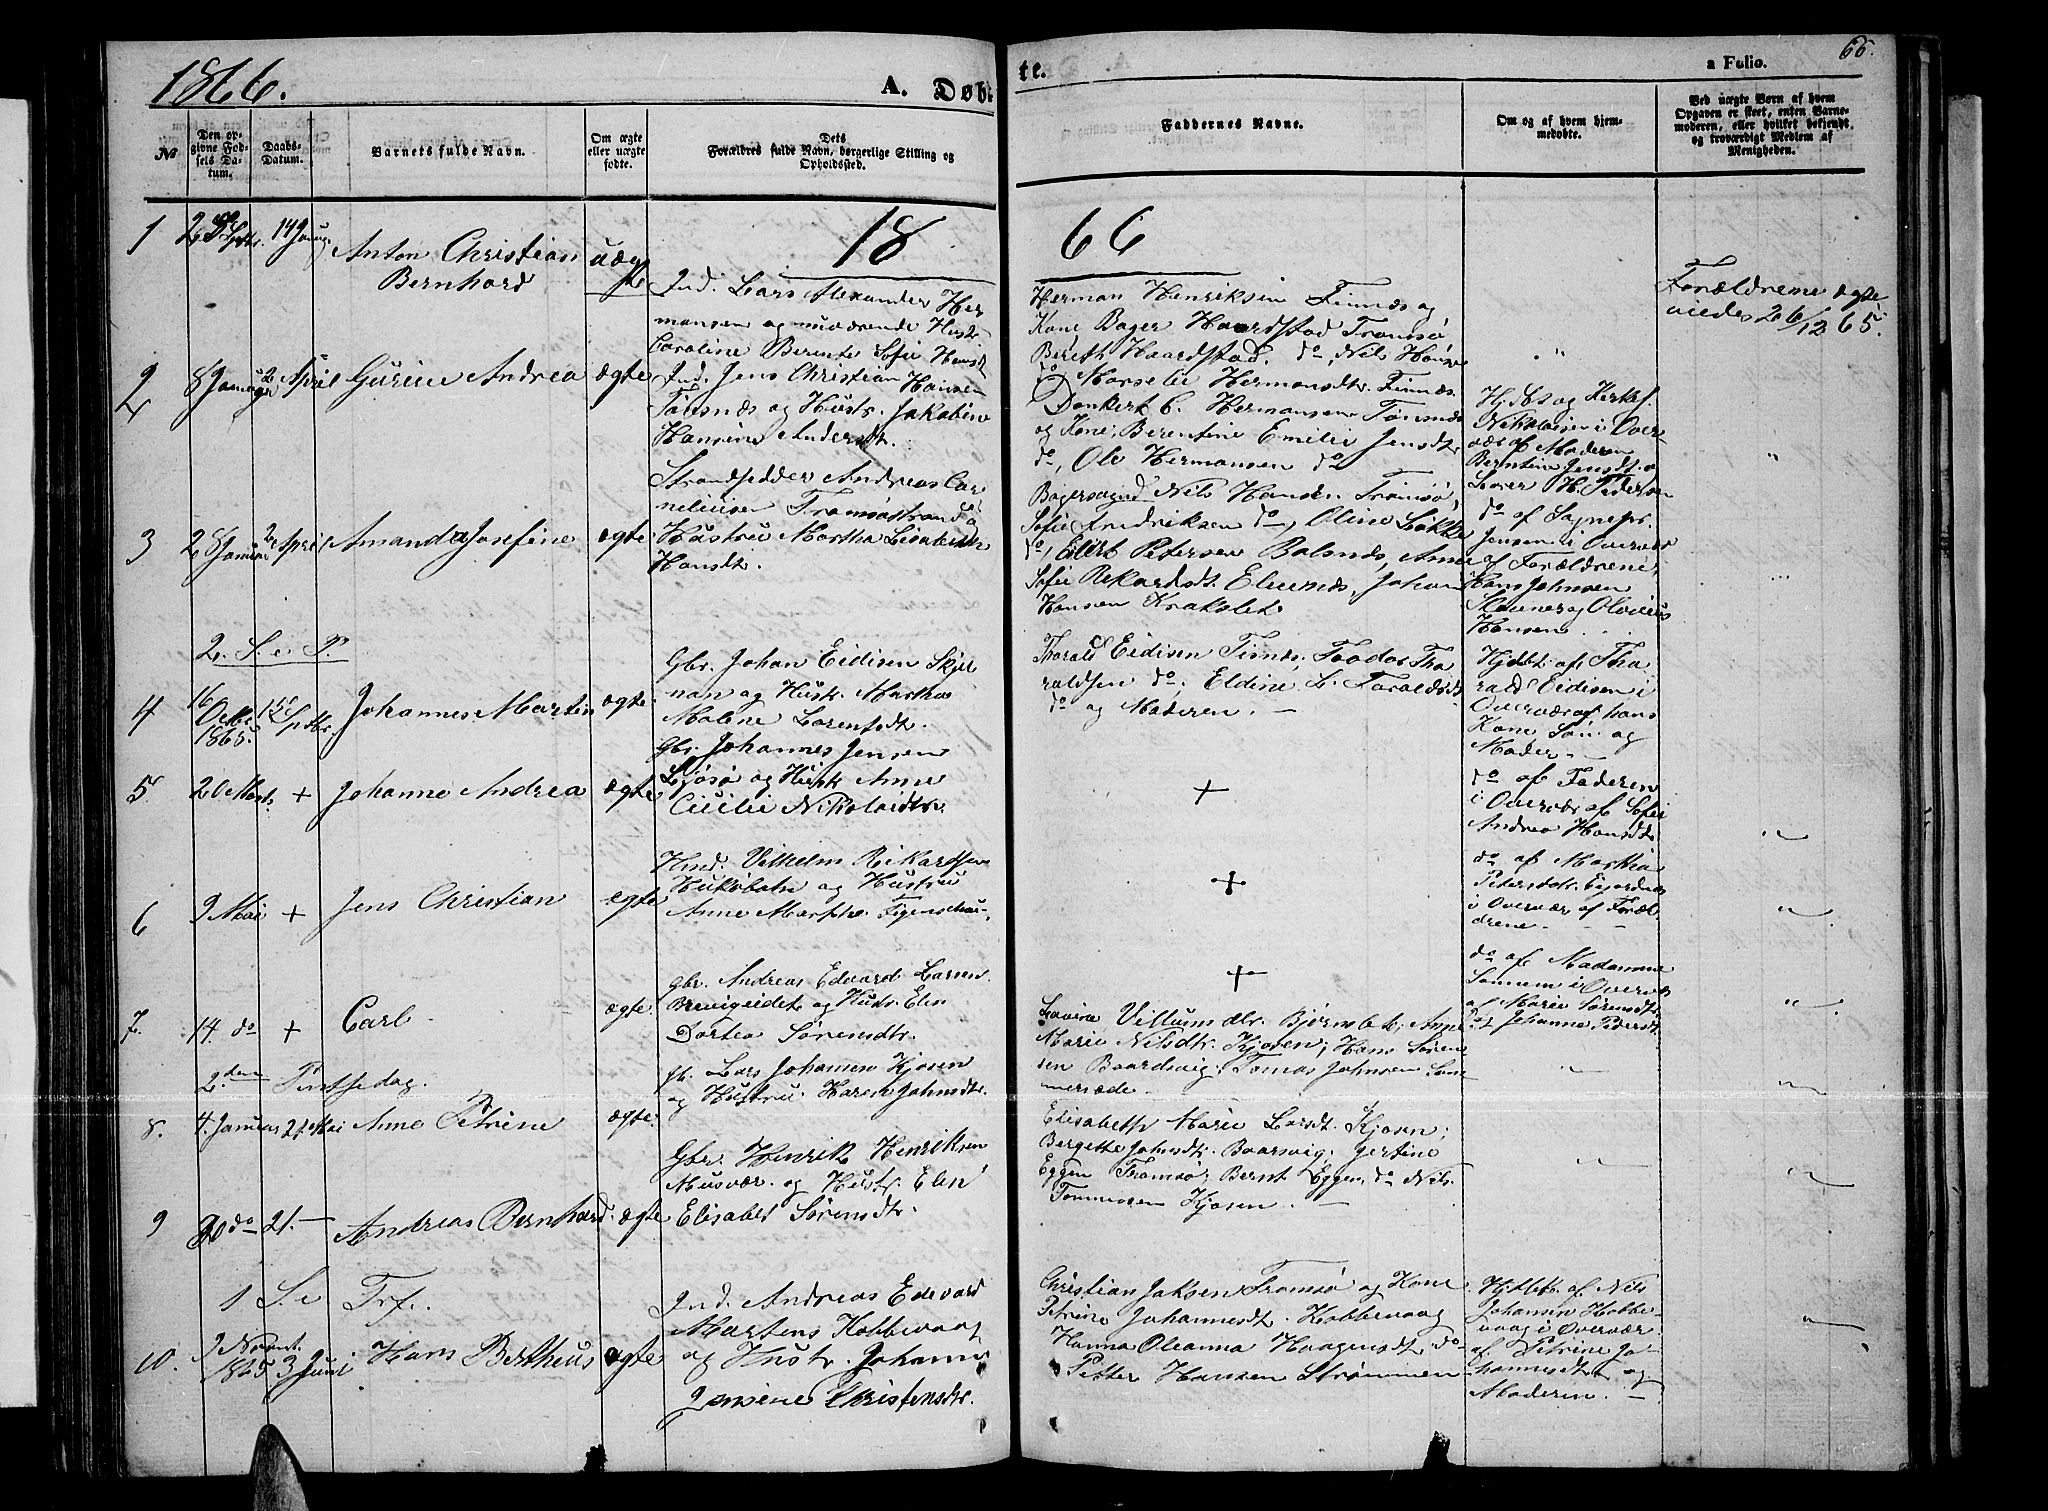 1866.
A. Døb-
te.
a Folio.
66.
No
Den op-
givne Fød-
sels Da-
tum.
Daabs-
Datum.
Barnets fulde Navn.
Om ægte
eller uægte
fødte.
Dets
Forældres fulde Navn, borgerlige Stilling og
Opholdssted.
Faddernes Navne.
Om og af hvem hjem-
medøbte.
Ved uægte Børn af hvem
Opgaven er skeet, enten Barne-
moderen, eller hvilket bekjendt
og troværdigt Medlem af
Menigheden.
18 66
1
14 Januar
Anton Christian
Bernhard
uæg
te
Ind. Lars Alexander Her
mansen og nuværende Hustr
Caroline Berente Sofie Hansdt
Herman Henriksen Finnæs og
Kone Bager Haardstad Tromsø
Bereth Haardstad. do, Nils Hansen
do Marselie Hermansdtr. Finnæs.
Forældrene ægte
viedes 26/12 65.
2
8 Januar
2 April
Gurine Andrea
ægte
Ind. Jens Christian Hansen
Tønsnæs og Hustr. Jakobine
Hansine Andersdt.
Donkert C. Hermansen Tønsnæs
og Kone, Berentine Emilie Jensdt
do, Ole Hermansen do
Hjdbt og Kirkes.
Nikolaisen i Over-
vær af Moderen
Berntine Jensdt. o
Lærer H. Pedersen
3
28 Januar
2 April
Amanda Josefine
ægte
Strandsidder Andreas Cor
neliusen Tromsøstrand og
Hustru Martha
Hansdt.
Bagersvend Nils Hansen Tromsø,
Sofie Fredriksen do, Oline Løkke
do, Eilert Petersen Balsnæs, Anne
Sofie Rekardsdt. Elvenæs, Johan
Hansen Krakslet.
do af Sognepr.
Jensen i Overvær
af Forældrene,
Hans Johnsen
og Olæus
Hansen.
2. S. e. P.
4
16
Octbr
1865.
15
Septbr.
Johannes Martin
ægte
Gbr. Johan Eidisen Skjel
nan og Hustr. Martha
Malene Lorentsdt.
Tharald Eidisen Finnes, Teodor Tha
raldsen do, Eldine L. Taraldsdt.
do og Moderen. —
Hjdbt af Tha
rald Eidisen i
Overvær af hans
Kone Søn og
Moder —
5.
20 Marts
+
Johanne Andrea
ægte
Gbr. Johannes Jensen
Ljøsø og Hustr Anne
Cicilie Nikolaidtr.
+
do af Faderen
i Overvær af Sofie
Andrea Hansdtr.
6
9 Mai
+
Jens Christian
ægte
Hmd. Vilhelm Rikardsen
Hukøbotn og Hustru
Anne Marthe Figenschau.
+
do af Marthia
Petersdtr. Ejordnæs
i Overvær af Foræl
drene. —
7.
14. do
+
Carl.
ægte
Gbr. Andreas Edvard Larsen
Breivigeidet og Hustr. Elen
Dortea Sørensdtr.
+
do af Madamme
Sannem i Overvær
af Marie Sørensdtr.
og Johanne Pedersdt.
2den Pintsedag.
8.
4. Januar
21. Mai
Anne Petrine
ægte
fb. Lars Johansen Kjosen
og Hustru Karen Johnsdtr.
Lavine Villumsdtr. Bjørnslet, Anne
Marie Nilsdtr. Kjosen; Hans Søren
sen Baardsvig. Tomas Johnsen Som
mersæde.
9
30 do
21. —
Andreas Bernhard.
ægte
Gbr. Henrik Henriksen
Musvær. og Hustr. Elen
Elisabet Sørensdtr.
Elisabeth Marie Larsdt. Kjosen;
Bergette Johnsdtr. Baarsvig; Jertine
Eggen Tromsø; Bernt Eggen, do Nils
Tommesen Kjosen. —
1 S. e Trf.
10.
9 Novemb.
1865
3 Juni
Hans Bertheus
ægte
Ind. Andreas Edevard
Martens Kobbevaag
og Hustr. Johanne
Jensine Christensdtr.
Christian Jaksen Tromsø og Kone
Petrine Johannesdt. Kobbevaag
Hanna Oleanna Haagensdt. do
Petter Hansen Strømmen
Hjdbt. af Nils
Johansen Kobbe
vaag i Overvær
af Petrine Jo-
hannesdt og
Moderen. —